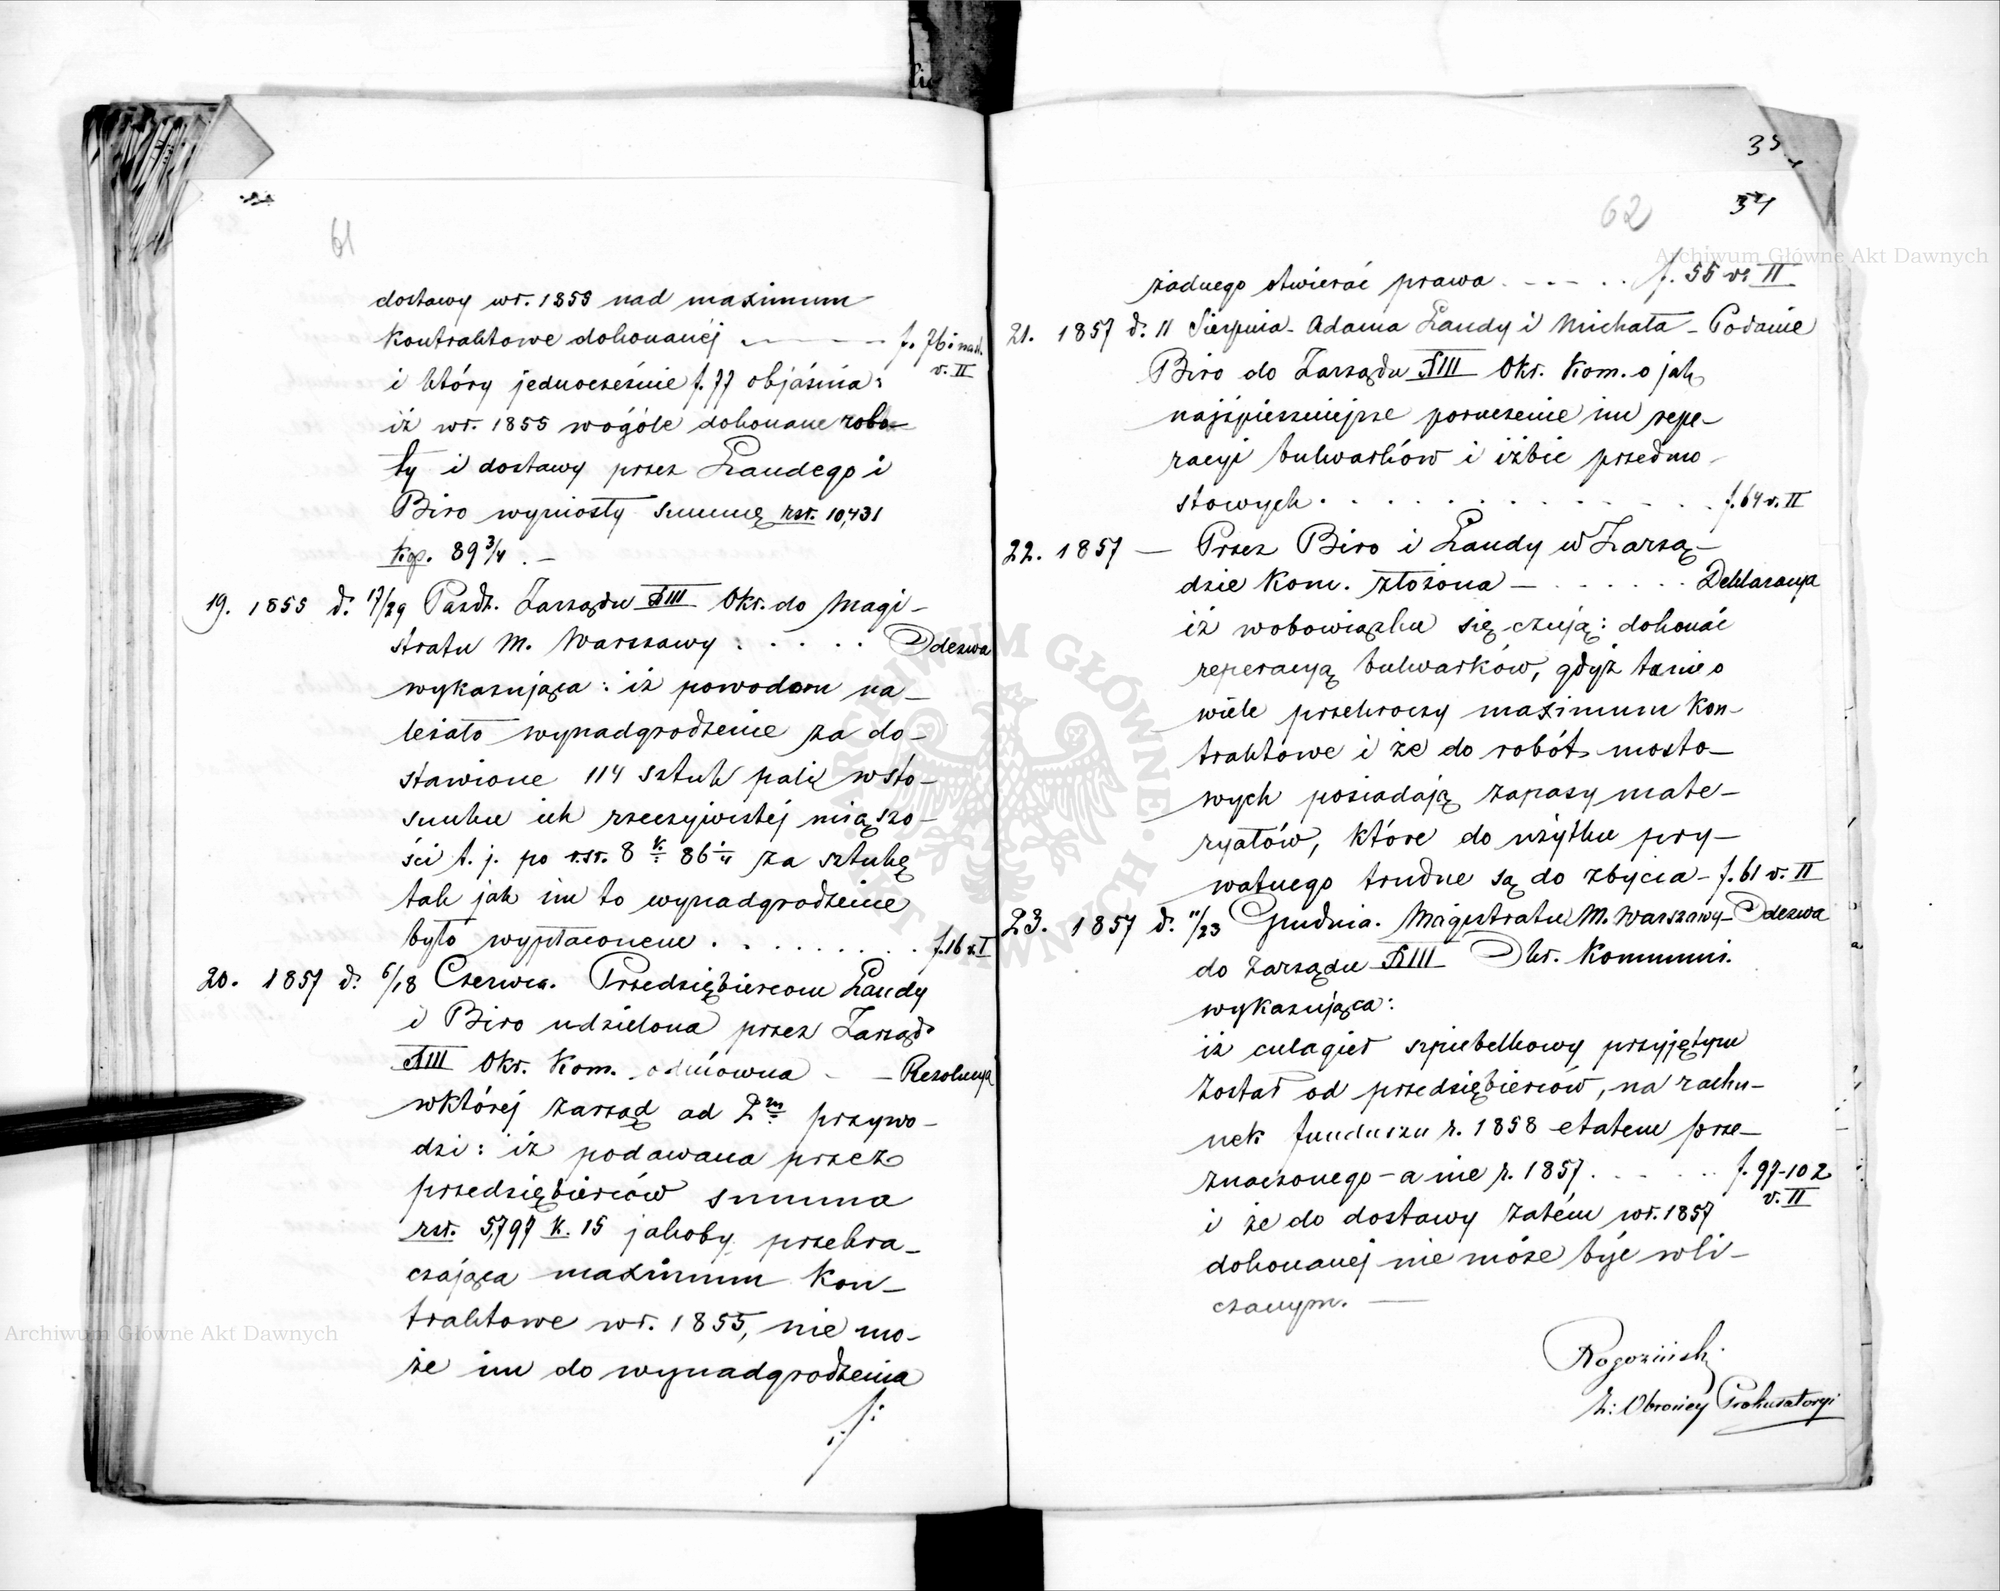 61
dostawy wr. 1855 nad maximum
kontraktowe dokonanéj — f. 76 i nast.
v. II
i który jednocześnie f. 77 objaśnia:
iż wr. 1855 wogóle dokonane robo-
ty i dostawy przez Landego i
Biro wyniosły summę rsr. 10,431
kop. 89 3/4. —
19. 1855 d. 17/29 Paźdz. Zarządu XIII Okr. do Magi-
stratu M. Warszawy : . . . . Odezwa
wykazująca: iż powodom na-
leżało wynadgrodzenie za do-
stawione 114 sztuk pali wsto-
sunku ich rzeczywistéj miąszo-
ści t. j. po rsr. 8 k. 86 1/4 za sztukę
tak jak im to wynadgrodzenie
było wypłaconem . . . . . . . . f. 16 v. I
20. 1857 d. 6/18 Czerwca. Przedsiębiercom Landy
i Biro udzielona przez Zarząd
XIII Okr. Kom. odmówna - — Rezolucya
wktóréj Zarząd ad 2m przywo-
dzi: iż podawana przez
przedsiębierców summa
rsr. 5,797 k. 15 jakoby przekra-
czająca maximum kon-
traktowe wr. 1855, nie mo-
że im do wynadgrodzenia
·/·
35
62
34
żadnego otwierać prawa . - - - . . f. 55 v. II
21. 1857 d. 11 Sierpnia - Adama Landy i Michała - Podanie
Biro do Zarządu XIII Okr. Kom. o jak
najśpieszniejsze poruczenie im repe-
racyi bulwarków i iżbic przedmo-
stowych . . . . . . . . . . . . . f. 64 v. II
22. 1857 — Przez Biro i Landy w Zarzą-
dzie Kom. złożona — . . . . . . Deklaracya
iż wobowiązku się czują: dokonać
reperacyą bulwarków, gdyż ta nie o
wiele przekroczy maximum kon-
traktowe i że do robót mosto-
wych posiadają zapasy mate-
ryałów, które do użytku pry-
watnego trudne są do zbycia - f. 61 v. II
23. 1857 d. 11/23 Grudnia. Magistratu M. Warszawy - Odezwa
do Zarządu XIII Okr. Kommunis.
wykazująca:
iż culagier szpichelkowy przyjętym
został od przedsiębierców, na rachu-
nek funduszu r. 1858 etatem prze-
znaczonego - a nie r. 1857 . . . . . f. 97-102
v. II
i że do dostawy zatém wr. 1857
dokonanej nie może być wli-
czanym. —
Rogoziński
z: Obrońcy Prokuratoryi
Archiwum Główne Akt Dawnych
Archiwum Główne Akt Dawnych
ARCHIWUM GŁÓWNE AKT DAWNYCH